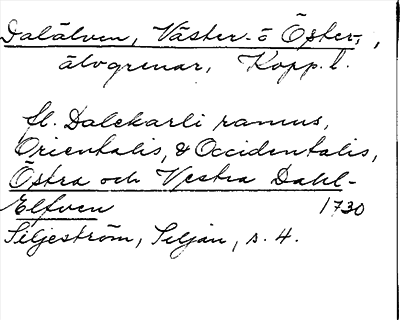 Dalälven, Väster- o Öster-,
älvgrenar, Kopp. l.
fl. Dalekarli ramus,
Orientalis, & Occidentalis,
Östra och Vestra Dahl-
Elfven 1730
Siljeström, Siljan, s. 4.